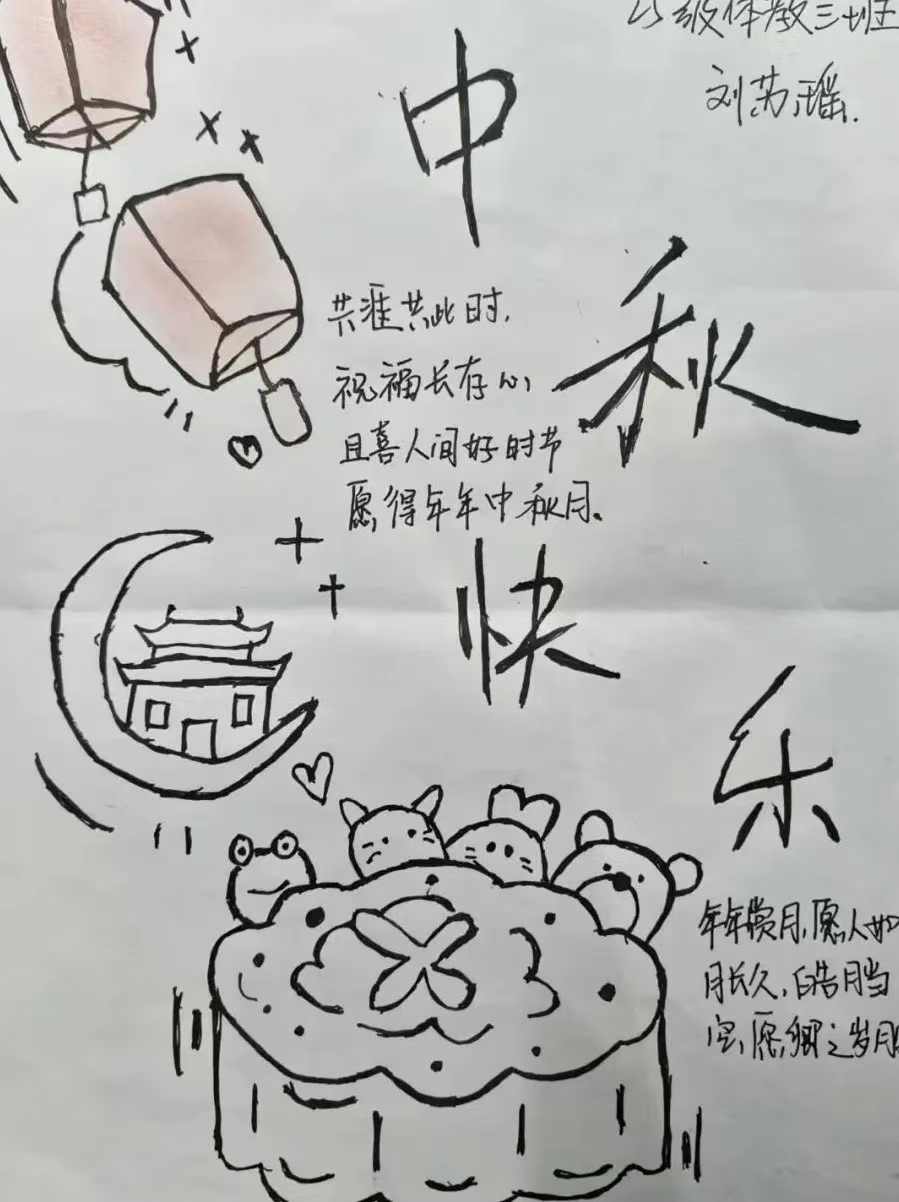 级体教三班
刘苏瑶.
中
秋
共涯共此时,
祝福长存心,
且喜人间好时节
愿得年年中秋月.
快
乐
年年赏月,愿人如
月长久,皓月当
空,愿卿之岁月